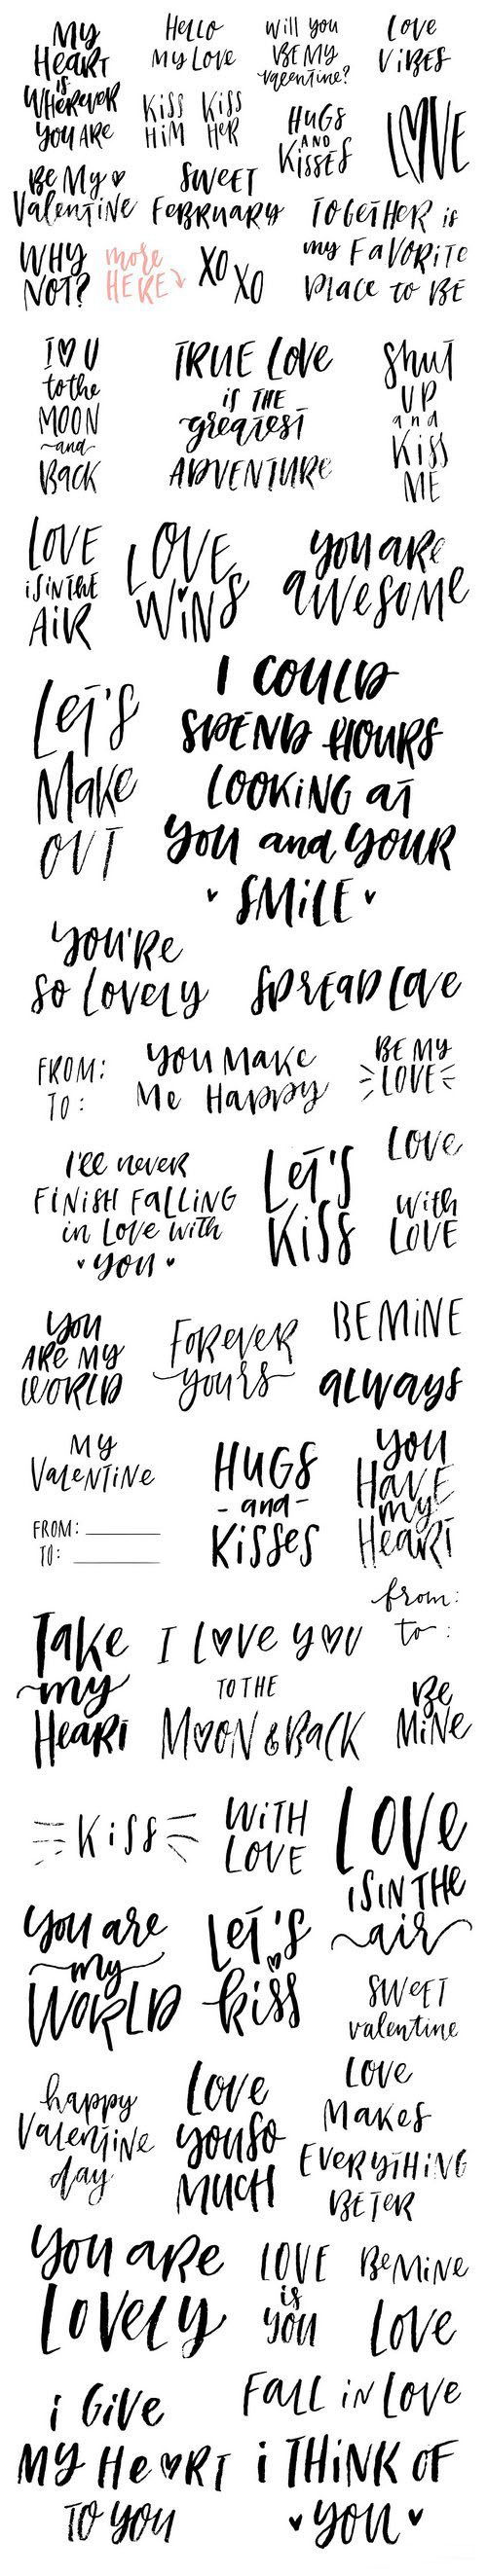 MY
HEART
is
WHEREVER
YOU ARE
HELLO
MY LOVE
will you
BE MY
valentine?
LOVE
ViBES
KiSS
HiM
KiSS
HER
HUGS
AND
KiSSES
LOVE
Be My
Valentine
SWEET
FEBRUARY
TOGETHER is
my FaVORiTe
PLace to BE
WHY
NOT?
more
HERE
XO
XO
I ♥ U
to the
MOON
and
Back
TRUE Love
is THE
greatest
ADVENTURE
Shut
UP
and
Kiss
ME
LOVE
iS iN THE
AiR
LOVE
WiNS
you aRe
aWeSoMe
Let's
Make
OUT
I COULD
SPEND HOURS
LOOKiNG aT
You and YOUR
♥ SMiLE ♥
you're
so Lovely
SPREAD Love
FROM:
TO:
You Make
Me Happy
BE MY
LOVE
I'll never
FiNiSH FaLLiNG
in Love with
♥ you ♥
LeT'S
KiSS
Love
with
LOVE
you
ARe MY
WORLD
FOReveR
yours
BE MiNE
aLways
MY
VaLeNTiNe
FROM:
TO:
HUGS
- and -
KiSSes
you
HaVE
my
HeaRT
from:
to:
Take
my
HeaRT
I L♥ve y♥u
TO THE
M♥oN & BaCK
Be
MiNe
KiSS
WiTH
LOVE
LOVe
iS iN THe
air
you are
my
WoRLD
LeT'S
kiss
SWeeT
valentine
happy
Valentine
day
Love
you so
MUCH
Love
MaKeS
EVERYTHiNG
BETeR
you aRe
LoveLy
LOVE
is
you
Be MiNe
Love
i GiVe
MY He♥RT
TO YOU
FaLL iN LOVe
i THiNK OF
♥ you ♥